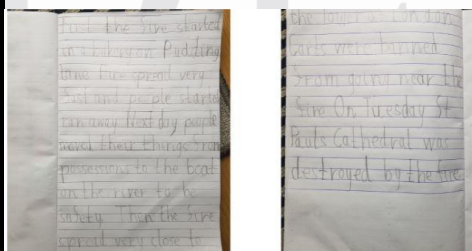 the fire started
in
fire spread very
fast and people started
ran away Next day people
their things from
possessions to the boat
on the river to be
safety Then the fire
spread very close to
the tower of London
carts were banned
from going near the
fire On Tuesday St
Pauls Cathedral was
destroyed by the fire